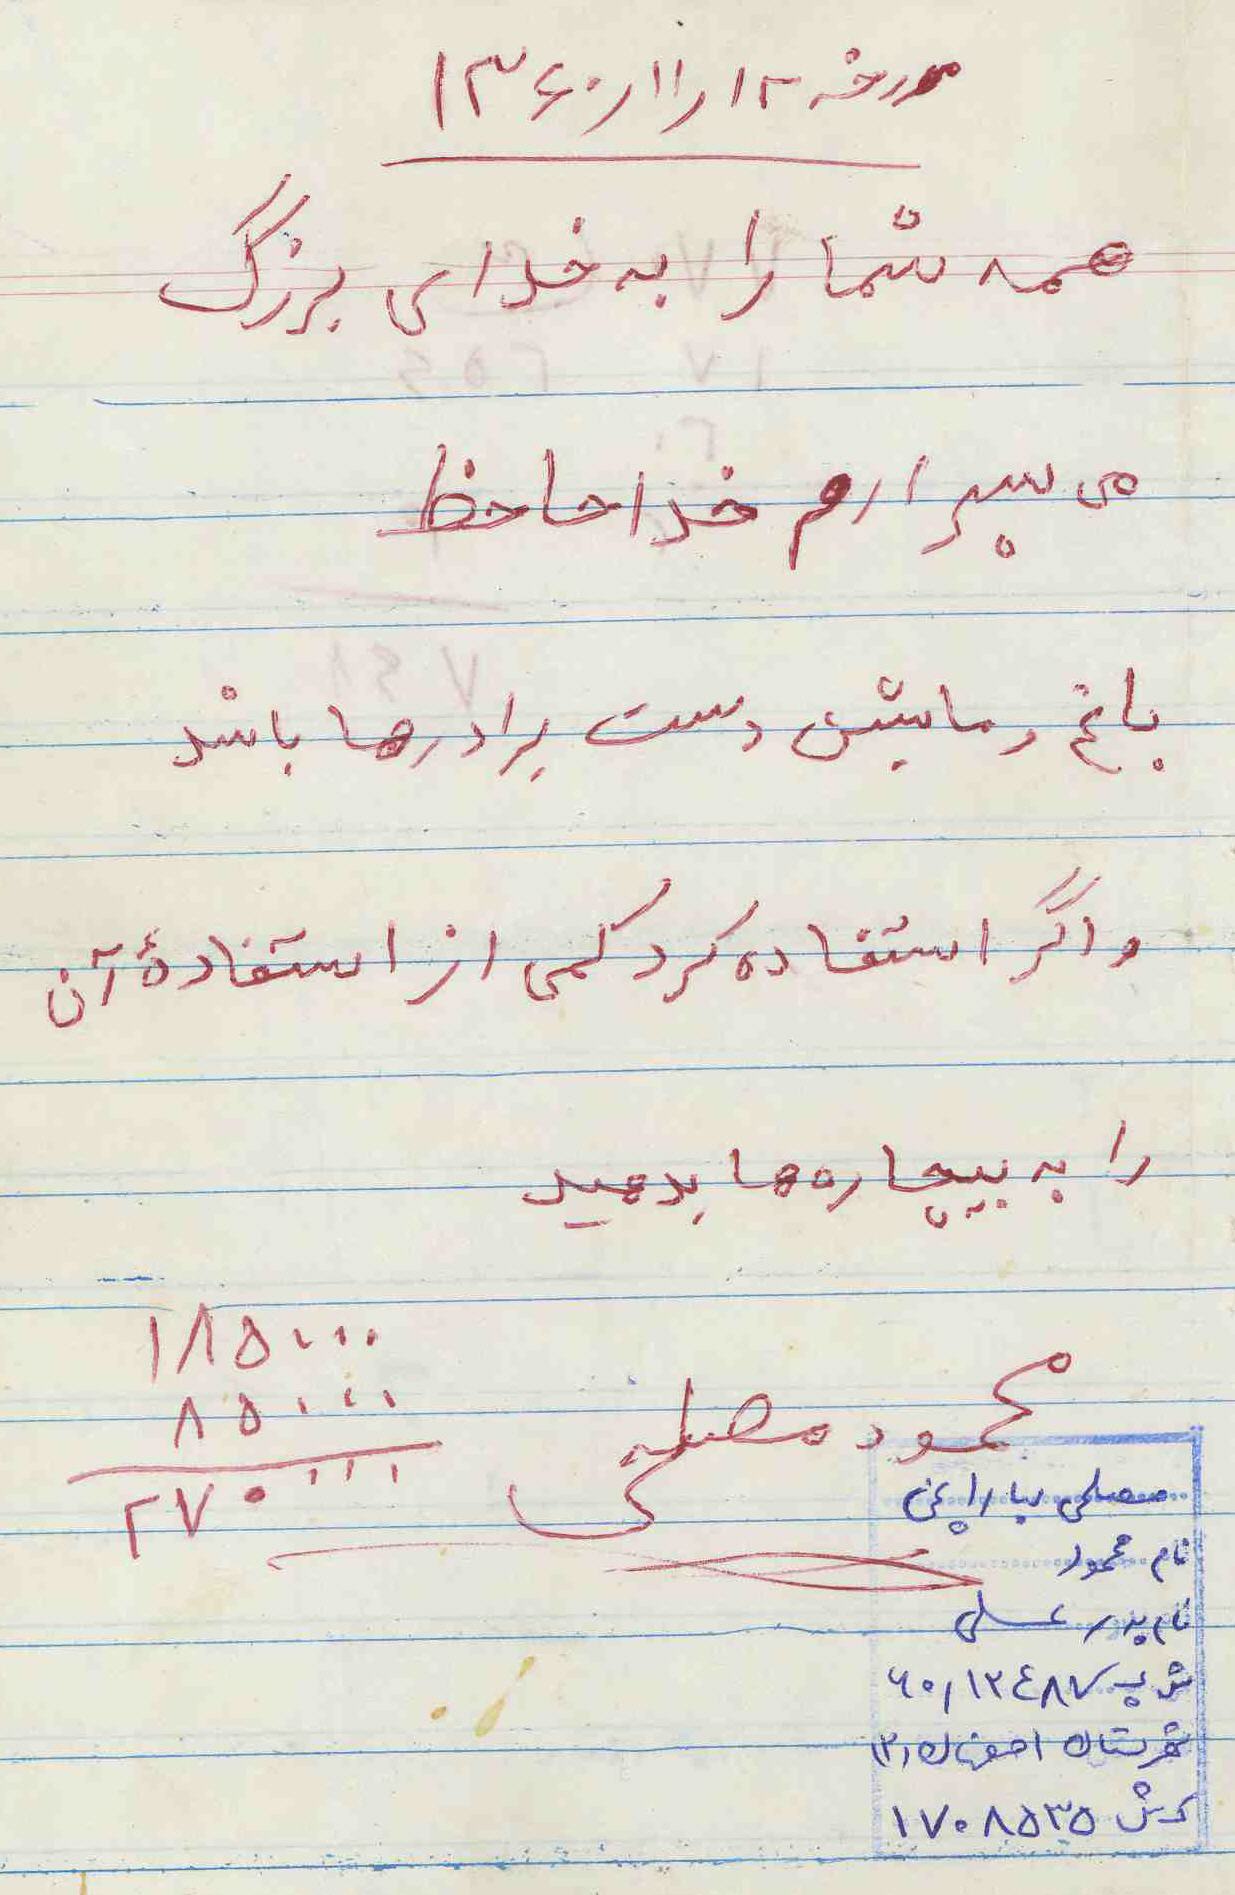 مورخه ۱۲ر۱۱ر۱۳۶۰
همه شما را به خدای بزرگ
می سپرارم خداحاحظ
باغ و ماشین دست برادرها باشد
و اگر استفاده کرد کمی از استفادهٔ آن
را به بیچاره‌ها بدهید
۱۸۵۰۰۰
۸۵۰۰۰
۲۷۰۰۰۰
محمود مصلحی
مصلحی
نام محمود
نام پدر علی
ش پ ۶۰٫۱۲۴۸۷
شهرستان اصفهان(۲)
کدش ۱۷۰۸۵۳۵